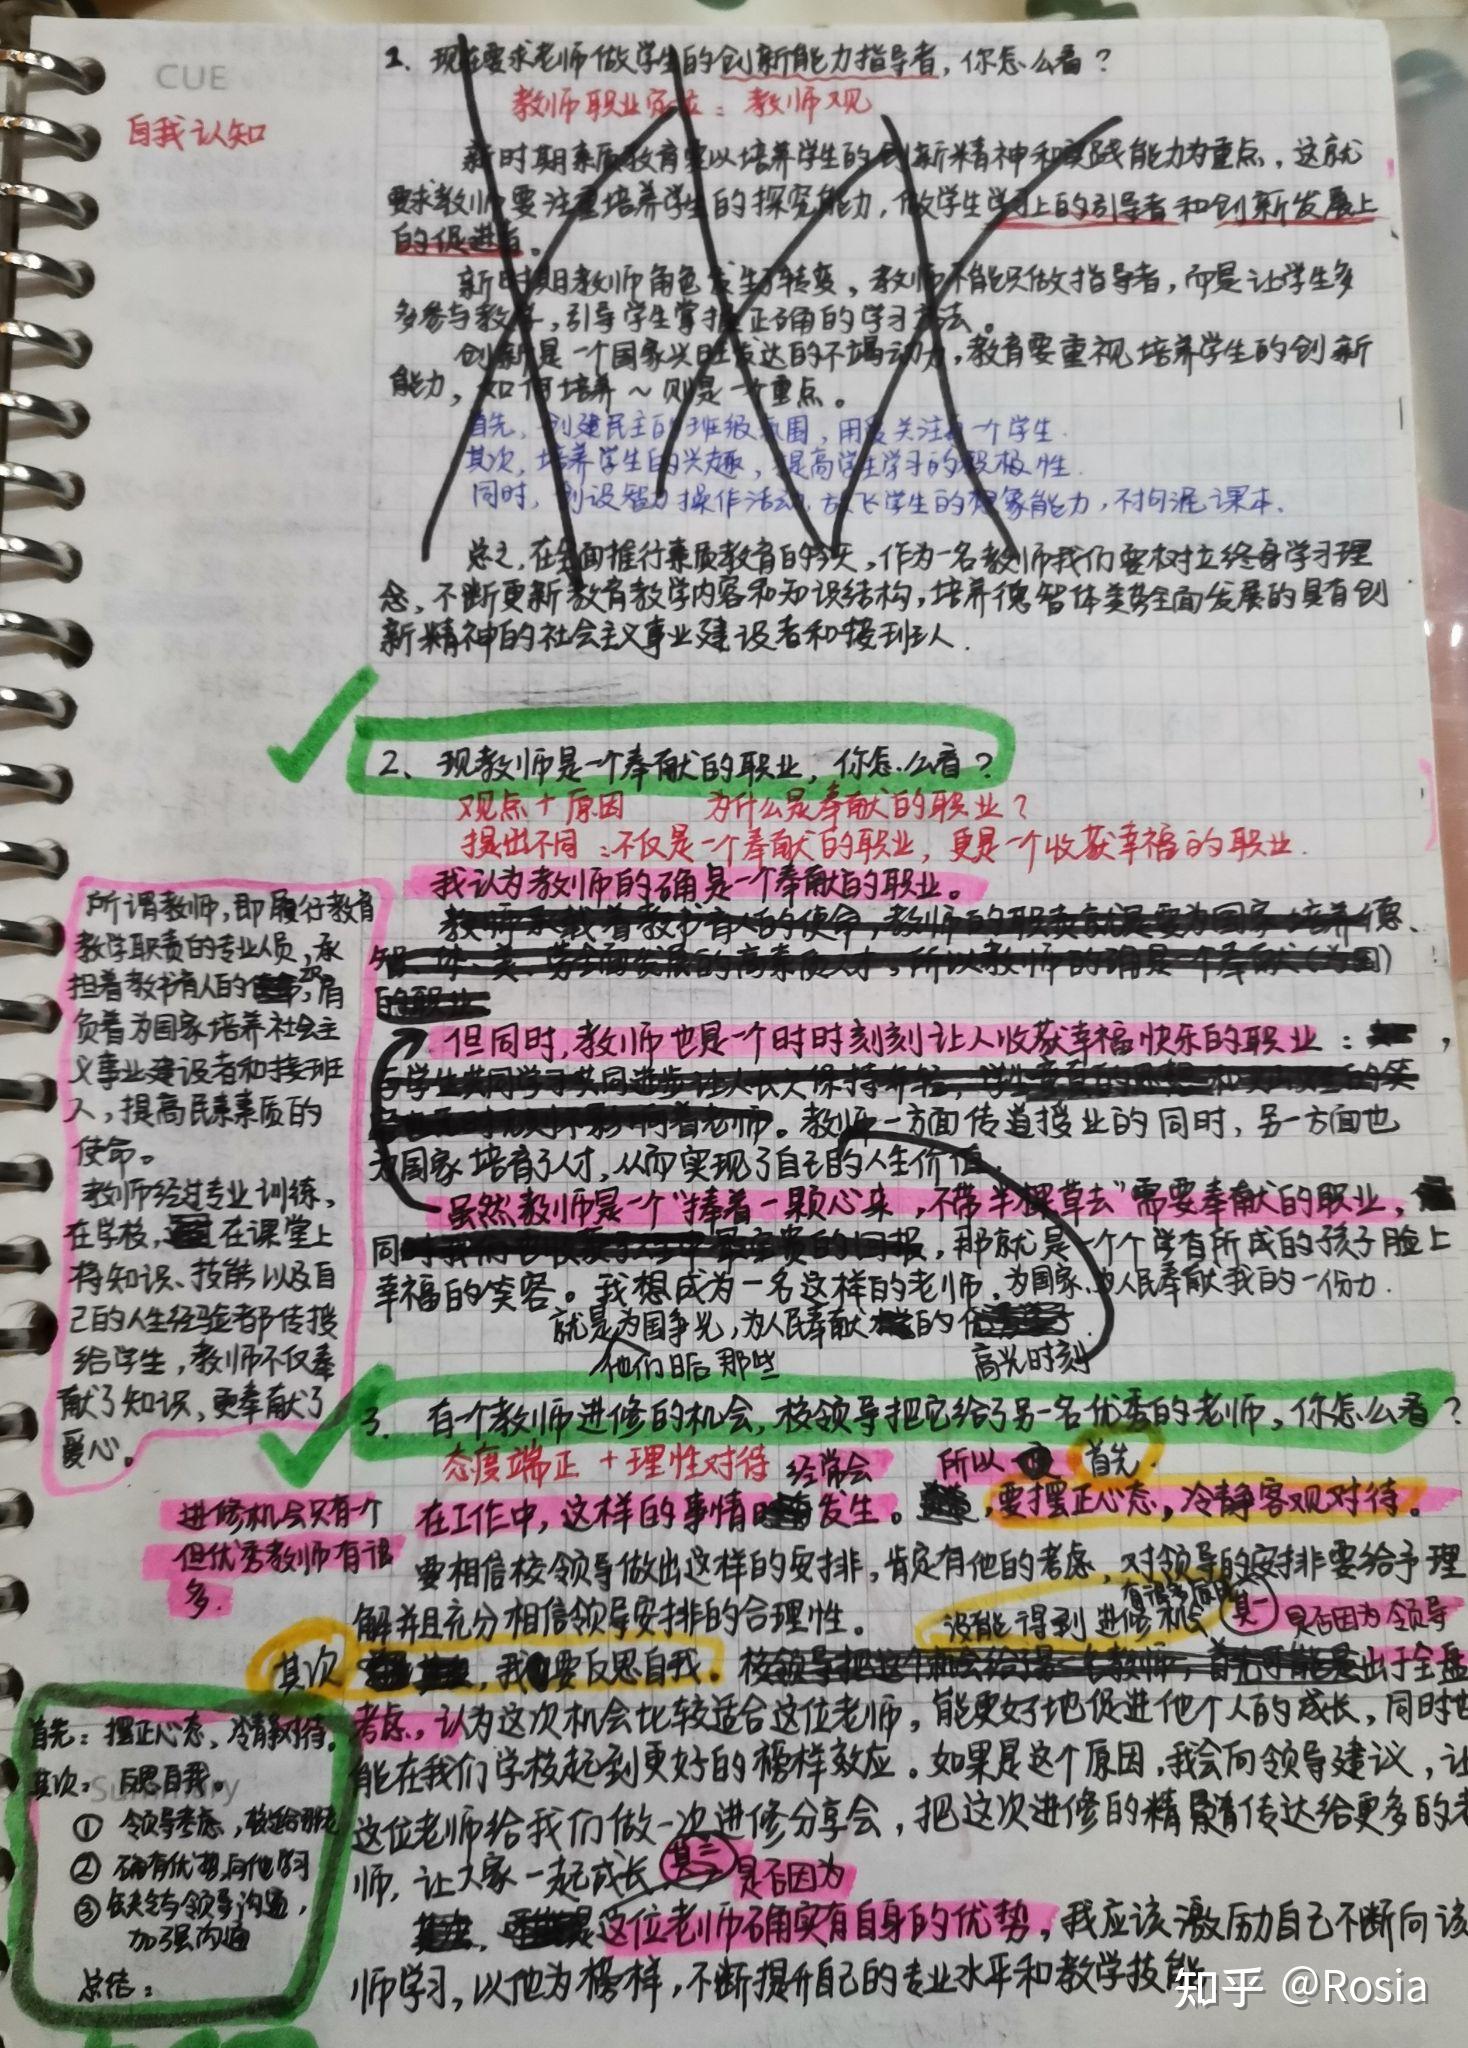 CUE
自我认知
1、现在要求老师做学生的创新能力指导者，你怎么看？
教师职业定位：教师观
新时期素质教育要以培养学生的创新精神和实践能力为重点，这就
要求教师要注重培养学生的探究能力，做学生学习上的引导者和创新发展上
的促进者。
新时期教师角色发生了转变，教师不能只做指导者，而是让学生多
多参与教学，引导学生掌握正确的学习方法。
创新是一个国家兴旺发达的不竭动力，教育要重视培养学生的创新
能力，如何培养～则是一个重点。
首先，创建民主的班级氛围，用爱关注每一个学生.
其次，培养学生的兴趣，提高学生学习的积极性.
同时，创设智力操作活动，放飞学生的想象能力，不拘泥课本.
总之，在全面推行素质教育的今天，作为一名教师我们要树立终身学习理
念，不断更新教育教学内容和知识结构，培养德智体美劳全面发展的具有创
新精神的社会主义事业建设者和接班人.
2、现教师是一个奉献的职业，你怎么看？
观点+原因 为什么是奉献的职业？
提出不同：不仅是一个奉献的职业，更是一个收获幸福的职业.
我认为教师的确是一个奉献的职业。
教师承载着教书育人的使命，教师的职责就是要为国家培养德、
智、体、美、劳全面发展的高素质人才，所以教师的确是一个奉献(为国)
的职业
所谓教师，即履行教育
教学职责的专业人员，承
担着教书育人的，肩
负着为国家培养社会主
义事业建设者和接班
人，提高民素素质的
使命。
教师经过专业训练，
在学校，在课堂上
将知识、技能以及自
己的人生经验都传授
给学生，教师不仅奉
献了知识，更奉献了
爱心。
但同时，教师也是一个时时刻刻让人收获幸福快乐的职业：，
与学生共同学习共同进步让人长久保持年轻，学生
老师。教师一方面传道授业的同时，另一方面也
为国家培育了人才，从而实现了自己的人生价值。
虽然教师是一个“捧着一颗心来，不带半棵草去”需要奉献的职业，
同时我们也收获了的回报，那就是一个个学有所成的孩子脸上
幸福的笑容。我想成为一名这样的老师，为国家、为人民奉献我的一份力.
就是为国争光，为人民奉献的
他们日后那些 高光时刻
3. 有一个教师进修的机会，校领导把它给了另一名优秀的老师，你怎么看？
态度端正+理性对待 经常会 所以 首先.
进修机会只有一个
但优秀教师有很
多.
在工作中，这样的事情发生。，要摆正心态，冷静客观对待。
要相信校领导做出这样的安排，肯定有他的考虑，对领导的安排要给予理
解并且充分相信领导安排的合理性。 没能得到进修机会 其一 是否因为领导
其次，我要反思自我。校领导把这个机会给了教师，首先可能是出于全盘
考虑，认为这次机会比较适合这位老师，能更好地促进他个人的成长，同时也
能在我们学校起到更好的榜样效应。如果是这个原因，我会向领导建议，让
这位老师给我们做一次进修分享会，把这次进修的精髓传达给更多的老
师，让大家一起成长 其二 是否因为
这位老师确实有自身的优势，我应该激励自己不断向该
师学习，以他为榜样，不断提升自己的专业水平和教学技能
Summary
首先：摆正心态，冷静对待。
其次：反思自我。
① 领导考虑，
② 确有优势，向他学习
③ 与领导沟通，
加强沟通
总结：
知乎 @Rosia